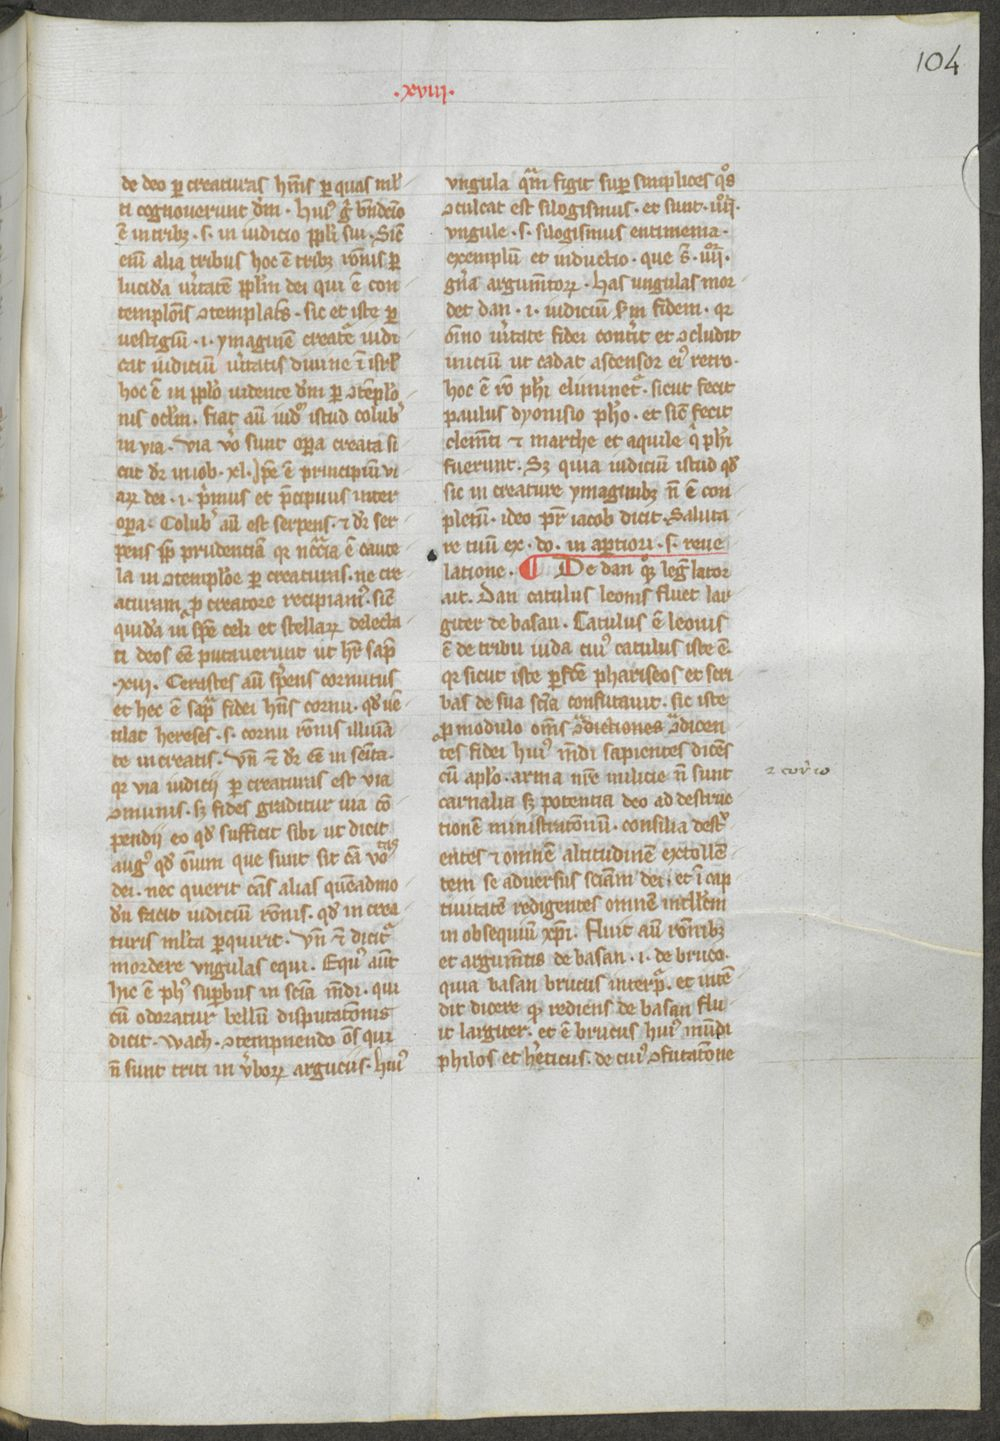 104
.xviij.
de deo per creaturas hmis per quas ml'
ti cognoverunt dm̅. Huiꝰ g̅ bn̅dictio
e̅ in tribꝫ. s. in iudicio ppl̅i sui. Sic̅
eni̅ alia tribus hoc e̅ tribꝫ ro̅nis per
lucida̅ v̅itate̅ ppl̅m dei qui e̅ con
templo̅is ꝯtemplat̅s. sic et iste per
vestigiu̅ .i. ymagine̅ creat̅e iudi
cat iudiciu̅ v̅itatis divine ⁊ isrl̅
hoc e̅ in pplo̅ vidente dm̅ per ꝯte̅plo̅
nis ocl̅m. fiat au̅ iud̅ istud colub̅
in via. via v̅o sunt op̅a creata si
cut dr̅ in iob. xl. Ip̅e e̅ principiu̅ vi
aꝝ dei .i. p̅mus et p̅cipuus inter
op̅a. Colub̅ au̅ est serpens. ⁊ dr̅ ser
pens pp̅ prudencia̅ qr n̅c̅c̅ia e̅ caute
la in ꝯtemplo̅e per creaturas. ne cre
aturam p̲ creatore recipiamꝰ. sic̅
quida̅ in spe̅ celi et stellaꝝ delecta
ti deos e̅e putaverunt ut hr̅ sap̅
.xiij. Cerastes au̅ s̅pens cornutus
et hec e̅ sap̅a fidei hn̅s cornu. qd̅ ve̅
tilat hereses. s. cornu ro̅nis illu̅ia̅
te in creatis. vn̅ ⁊ dr̅ e̅e in semita.
qr via iudicij per creaturas est via
ꝯmunis. sꝫ fides graditur via co̅
pendij eo qd̅ sufficit sibi ut dicit
augꝰ qd̅ o̅ium que sunt sit ca̅ vo̅tas
dei. nec querit ca̅s alias que̅admo
du̅ facit iudiciu̅ ro̅nis. qd̅ in crea
turis ml̅ta perquirit. vn̅ ⁊ dicit̅
mordere vngulas equi. Equꝰ aut̅
hic e̅ phꝰ superbus in sc̅ia mu̅di. qui
cu̅ odoratur bellu̅ disputat̅onis
dicit. wach. ꝯtempnendo o̅s qui
n̅ sunt triti in v̅boꝝ argucijs. huiꝰ
vngula qua̅ figit super simplices qo̅s
ꝯculcat est silogismus. et sunt .iiij.
vngule. s. silogismus entimema.
exemplu̅ et inductio. que s̅ .iiij.
gn̅a argume̅toꝝ. has vngulas mor
det dan .i. iudiciu̅ sm̅ fidem. qr
o̅ino v̅itate fidei cont̅it et ꝯcludit
iniciu̅ ut cadat ascensor eiꝰ retro.
hoc e̅ ro̅ phi̅ eliminet̅. sicut fecit
paulus dyonisio pho̅. et sic̅ fecit
cleme̅ti ⁊ marche et aquile q̅ phi̅
fuerunt. Sꝫ quia iudiciu̅ istud qd̅
sic in creature ymaginibꝫ n̅ e̅ con
pletu̅. ideo pr̅ iacob dicit. Saluta
re tuu̅ ex. do. in ap̅tiori. s. reve
latione. ¶ De dan qꝫ leg̅ lator
ait. Dan catulus leonis fluet lar
giter de basan. Catulus e̅ leonis
e̅ de tribu iuda cuiꝰ catulus iste e̅.
qr sicut iste p̅fc̅e phariseos et scri
bas de sua sc̅ia confutavit. sic iste
per modulo om̅s ꝯ̅dictiones ꝯ̅dicen
tes fidei huiꝰ mu̅di sapientes dice̅s
cu̅ aplo̅. arma nr̅e milicie n̅ sunt
carnalia sꝫ potentia deo ad destruc
tione̅ ministrat̅onu̅. consilia destr̅
entes ⁊ omne̅ altitudine̅ extolle̅
tem se adversus scia̅m dei. et i̅ cap
tivitate̅ redigentes omne̅ intll̅em
in obsequiu̅ xp̅i. fluit au̅ ro̅nibꝫ
et argume̅tis de basan .i. de bruco.
quia basan brucus interp̅. et inte̅
dit dicere qꝫ rediens de basan flu
it largiter. et e̅ brucus huiꝰ mu̅di
philos et h̅eticus. de cuiꝰ ꝯfutat̅one
2 cor̅ 10